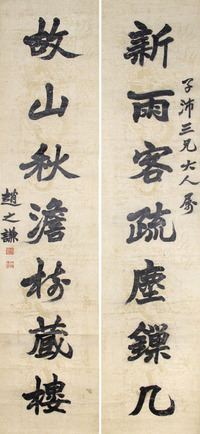 新雨客疏塵鏁几
子沛三兄大人屬
故山秋澹樹藏樓
趙之謙